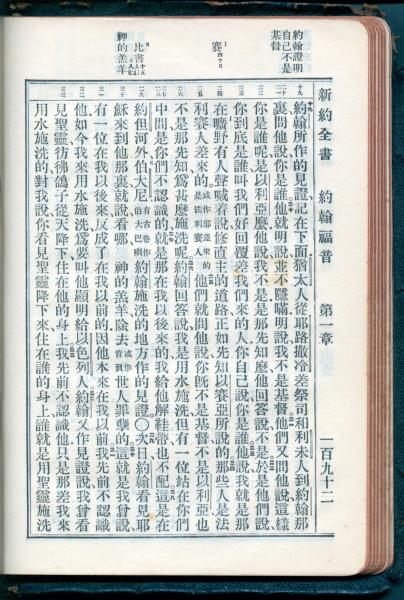 新約全書 約翰福音 第一章 一百九十二
約翰證明
自己不是
基督
賽
神的羔羊
約翰所作的見證記在下面猶太人從耶路撒冷差祭司和利未人到約翰那
裏問他說你是誰他就明說並不隱瞞明說我不是基督他們又問他說這樣
你是誰呢是以利亞麼他說我不是是那先知麼他回答說不是於是他們說
你到底是誰叫我們好回覆差我們來的人你自己說你是誰他說我就是那
在曠野有人聲喊着說修直主的道路正如先知以賽亞所說的那些人是法
利賽人差來的或作那差來的是法利賽人他們就問他說你旣不是基督不是以利亞也
不是那先知爲甚麼施洗呢約翰回答說我是用水施洗但有一位站在你們
中間是你們不認識的就是那在我以後來的我給他解鞋帶也不配這是在
約但河外伯大尼有古卷作伯大巴喇約翰施洗的地方作的見證〇次日約翰看見耶
穌來到他那裏就說看哪 神的羔羊除去或作背負世人罪孽的這就是我曾說
有一位在我以後來反成了在我以前的因他本來在我以前我先前不認識
他如今我來用水施洗爲要叫他顯明給以色列人約翰又作見證說我曾看
見聖靈彷彿鴿子從天降下住在他的身上我先前不認識他只是那差我來
用水施洗的對我說你看見聖靈降下來住在誰的身上誰就是用聖靈施洗